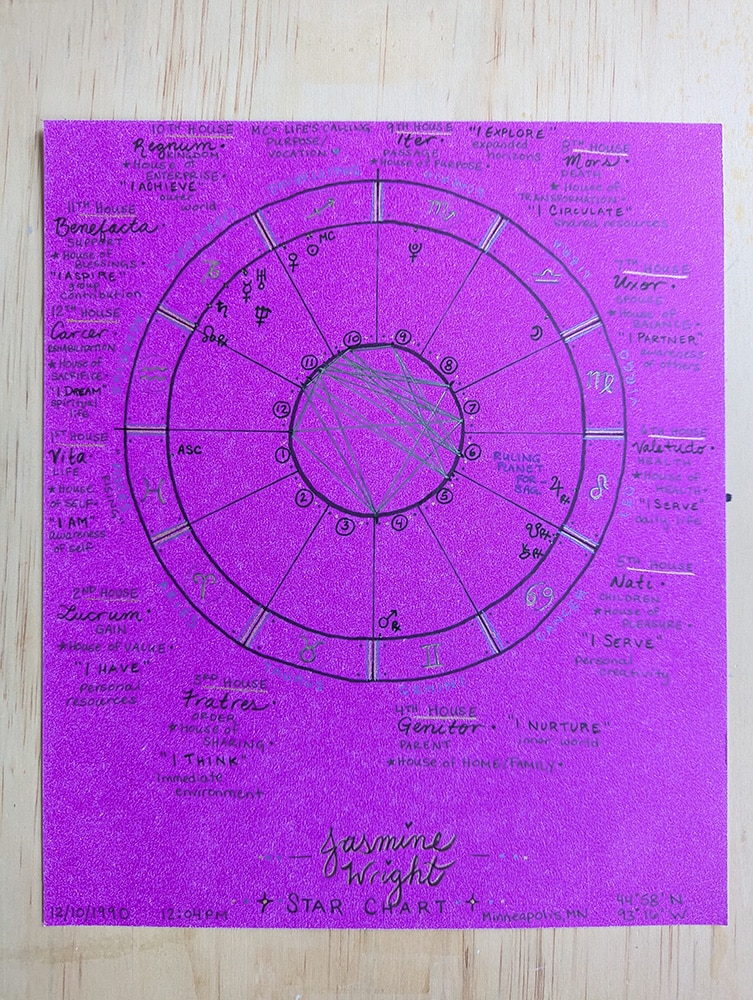 10TH HOUSE
Regnum·
KINGDOM
★House of
ENTERPRISE·
"I ACHIEVE"
outer
world
MC= LIFE'S CALLING
PURPOSE/
VOCATION
9TH HOUSE
Iter·
PASSAGE
★House of PURPOSE·
"I EXPLORE"
expanded
horizons
8TH HOUSE
Mors·
DEATH
★House of
TRANSFORMATION·
"I CIRCULATE"
shared resources
11TH HOUSE
Benefacta·
SUPPORT
★House of
BLESSINGS·
"I ASPIRE"
group
contribution
7TH HOUSE
Uxor·
SPOUSE
★House of
BALANCE·
"I PARTNER"
awareness
of others
12TH HOUSE
Carcer
REHABILITATION
★House of
SACRIFICE·
"I DREAM"
spiritual
life
1ST HOUSE
Vita·
LIFE
★HOUSE
of SELF·
"I AM"
awareness
of self
6TH HOUSE
Valetudo·
HEALTH
★House of
HEALTH·
"I SERVE"
daily life
5TH HOUSE
Nati·
CHILDREN
★House of
PLEASURE·
"I SERVE"
personal
creativity
2ND HOUSE
Lucrum·
GAIN
★House of VALUE·
"I HAVE"
personal
resources
3RD HOUSE
Fratres·
ORDER
★House of
SHARING·
"I THINK"
immediate
environment
4TH HOUSE
Genitor·
PARENT
★House of HOME/FAMILY·
"I NURTURE"
inner world
LIBRA
VIRGO
CANCER
GEMINI
RISING
♐
♏
♎
♍
♌
♋
♊
♉
♈
♓
♒
♑
MC
☉
♀
♇
☿
♅
♆
♄
☊℞
☽
ASC
RULING
PLANET
FOR
SAG.
♃℞
♂℞
10
9
8
7
6
5
4
3
2
1
12
11
Jasmine
Wright
STAR CHART
12/10/1990
12:04PM
Minneapolis, MN
44°58' N
93°16' W